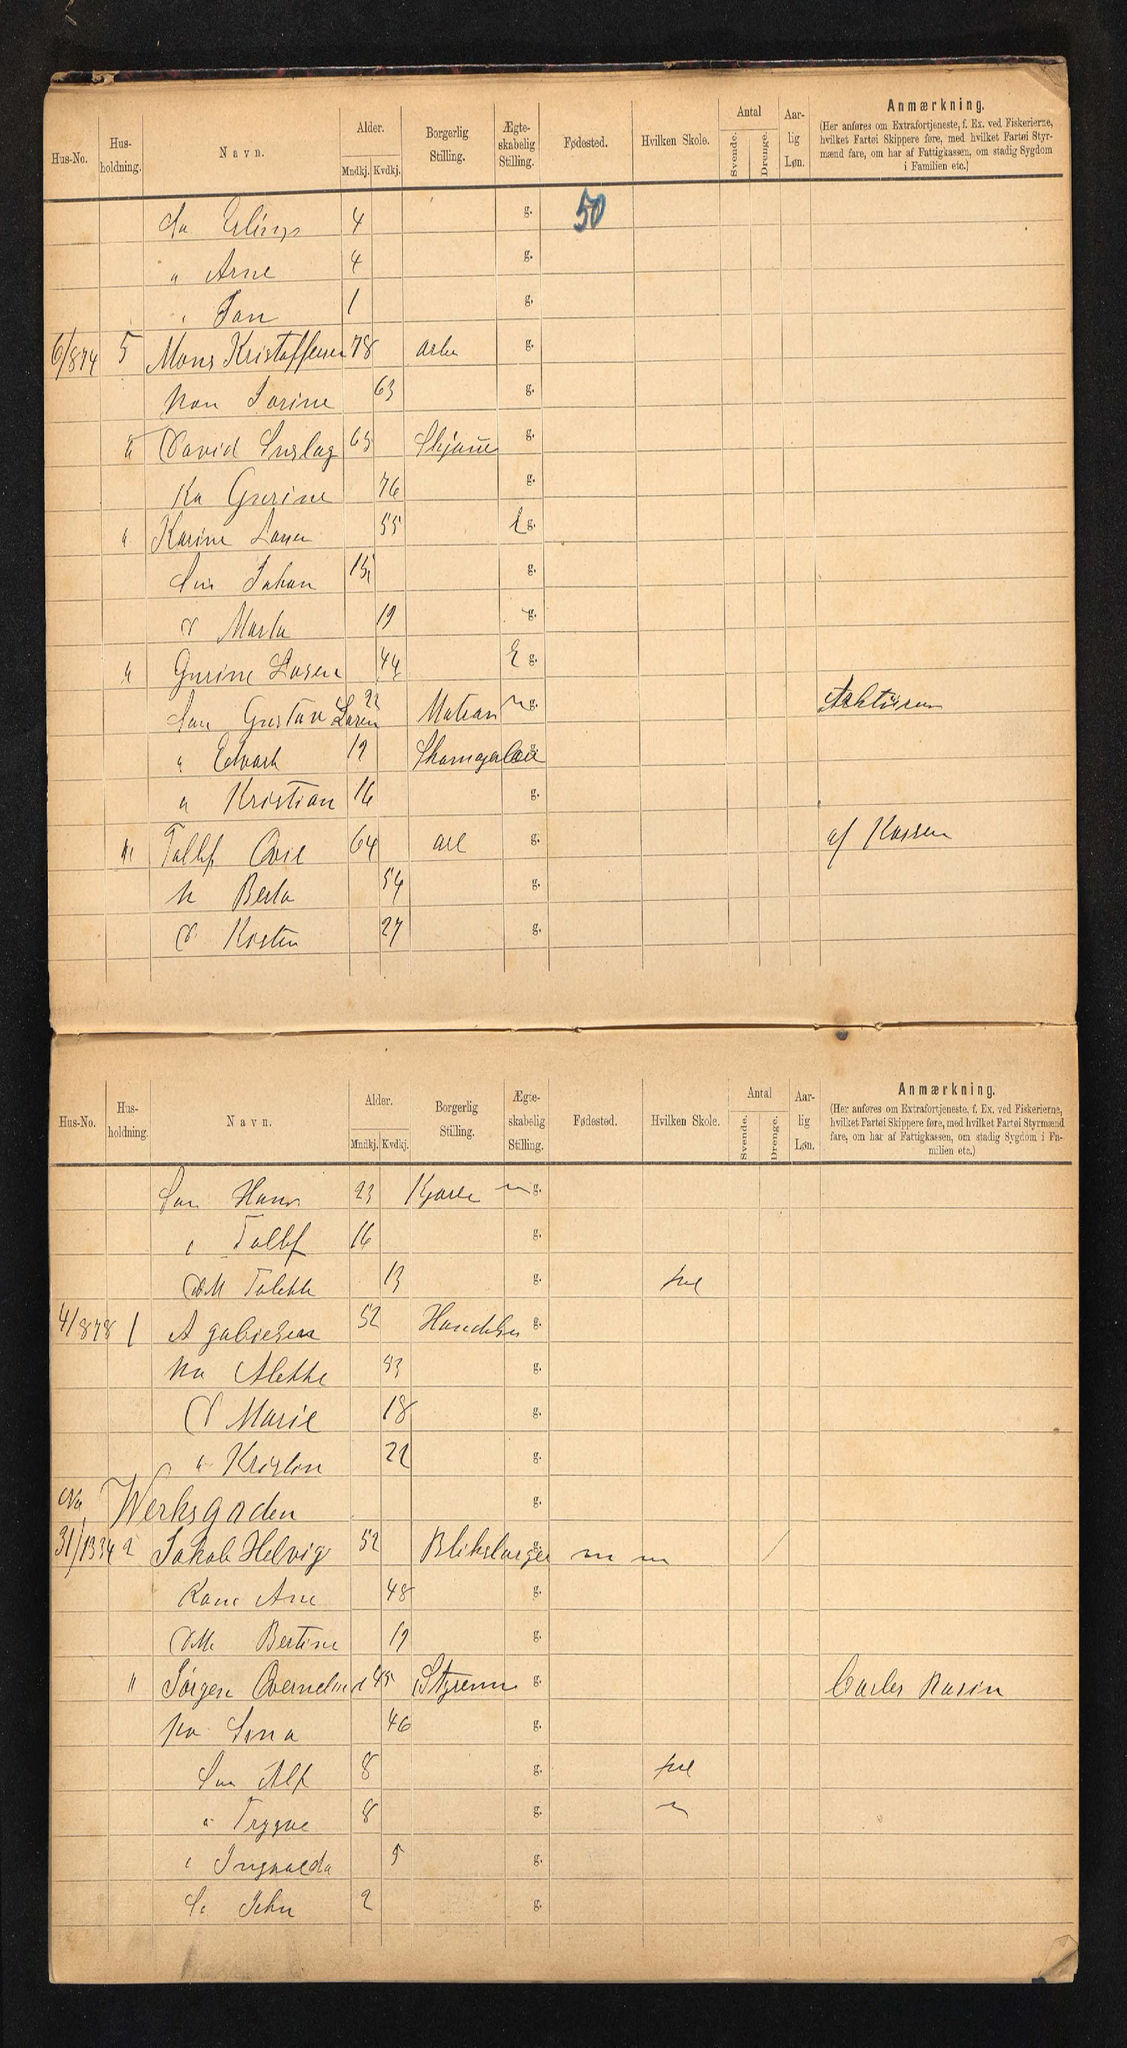 Hus-No. Hus-holdning. Navn. Alder. Mndkj. Kvdkj. Borgerlig Stilling. Ægte-skabelig Stilling. Fødested. Hvilken Skole. Antal Svende. Drenge. Aar-lig Løn. Anmærkning.
(Her anføres om Extrafortjeneste, f. Ex. ved Fiskerierne, hvilket Partøi Skippere føre, med hvilket Fartøi Styrmænd fare, om har af Fattigkassen, om stadig Sygdom i Familien etc.)
Erling 4 g. 50
" Arne 4 g.
" Jan 1 g.
6/874 5 Mons Kristoffersen 78 arbe g.
Kon Torine 63 g.
" David 63 g.
Ka Gurine 76 g.
" Karine Larsen 55 E g.
Søn Johan 15 g.
D Marta 19 g.
" Gurine Larsen 44 E g.
Søn Gustav Larsen 22 Matran g.
" Edvart 19 g.
" Kristian 16 g.
" Tollf 64 arb g. af Kassen
K Berta 54 g.
D Kirsten 27 g.
Hus-No. Hus-holdning. Navn. Alder. Mndkj. Kvdkj. Borgerlig Stilling. Ægte-skabelig Stilling. Fødested. Hvilken Skole. Antal Svende. Drenge. Aar-lig Løn. Anmærkning.
(Her anføres om Extrafortjeneste, f. Ex. ved Fiskerierne, hvilket Fartøi Skippere føre, med hvilket Fartøi Styrmænd fare, om har af Fattigkassen, om stadig Sygdom i Familien etc.)
Søn Hans 23 g.
" Tollf 16 g.
Dtt 13 g.
4/878 1 A Gabrielsen 52 g.
Ko Alette 53 g.
D Marie 18 g.
" Kristin 22 g.
Werksgaden g.
31/1334 2 Jakob Helvig 52 Blikslarger g.
Kone Ane 48 g.
Dtt Bertine 19 g.
" Jørgen 45 Styrem g.
Ko Lina 46 g.
Søn Alf 8 g.
" Trygve 8 g.
" Ingvalda 5 g.
S John 2 g.